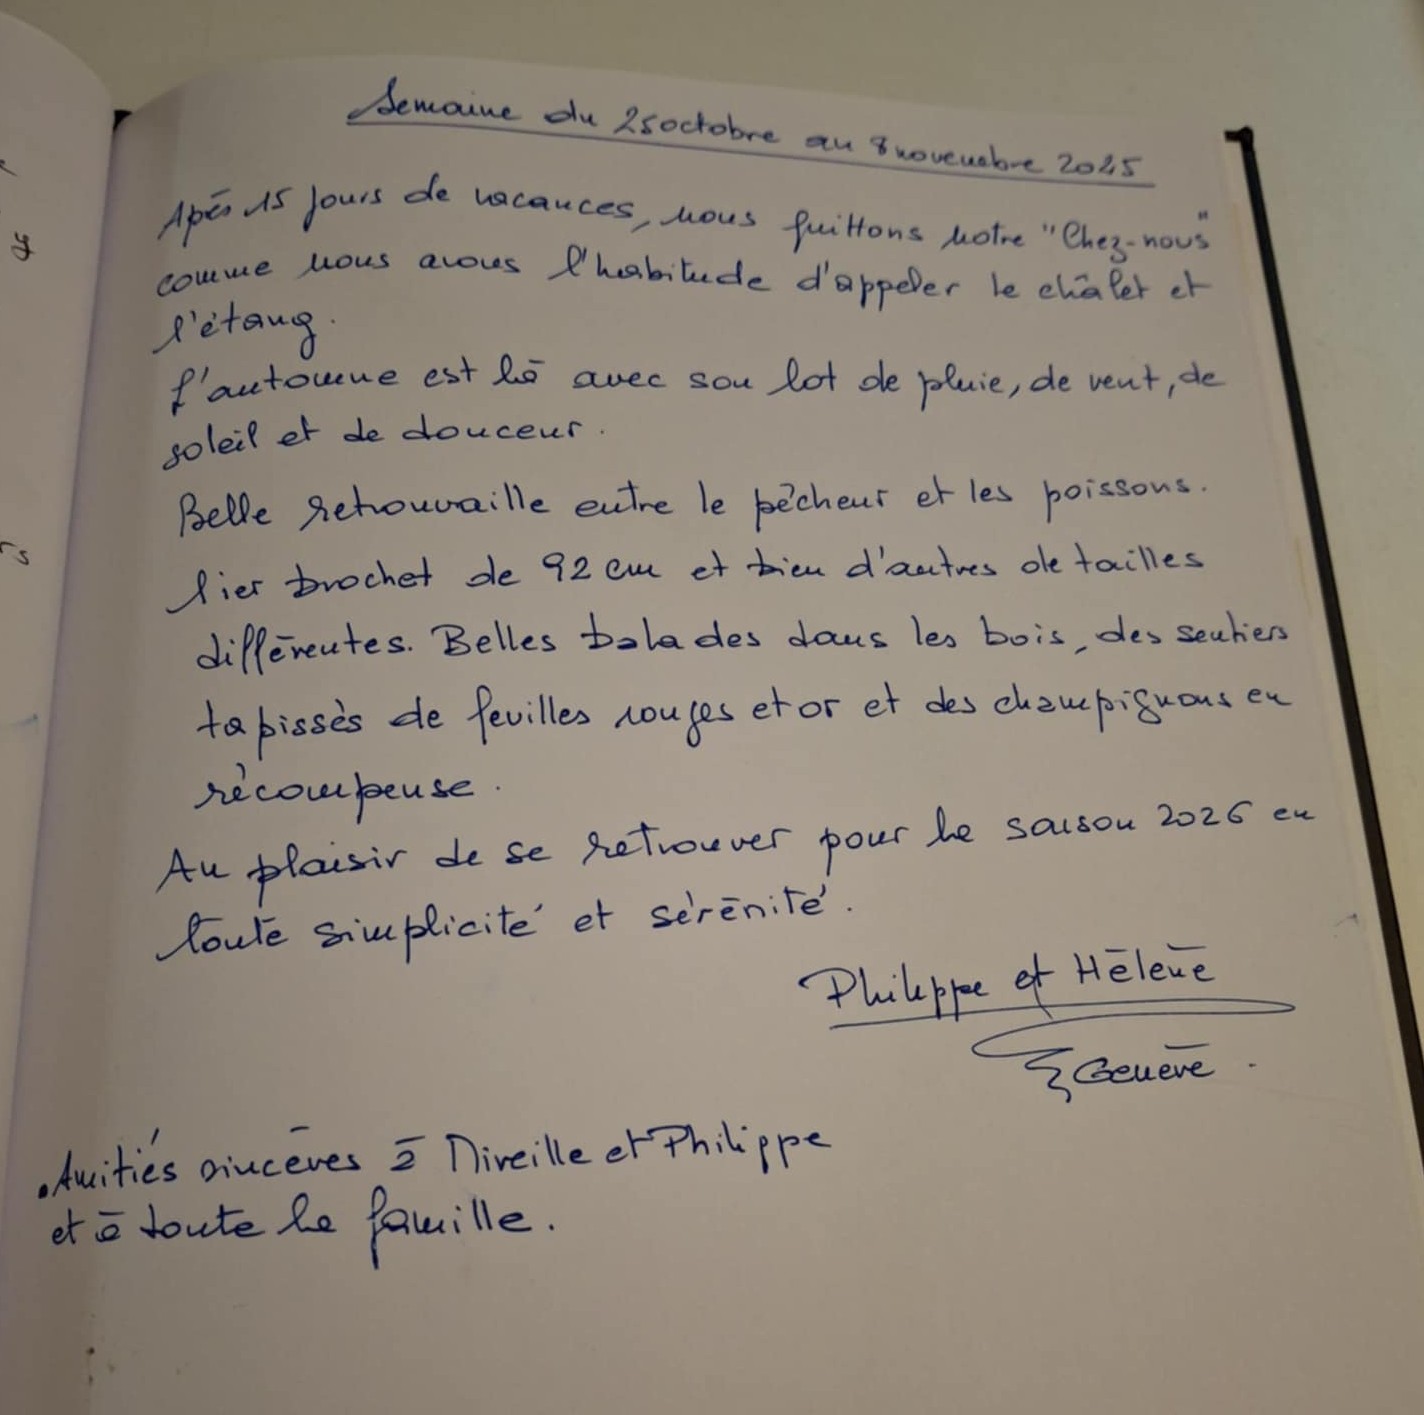 Semaine du 25 octobre au 8 novembre 2025
Après 15 jours de vacances, nous quittons notre "Chez-nous"
comme nous avons l'habitude d'appeler le châlet et
l'étang.
L'automne est là avec son lot de pluie, de vent, de
soleil et de douceur.
Belle retrouvaille entre le pêcheur et les poissons.
1ier brochet de 92 cm et bien d'autres de tailles
différentes. Belles balades dans les bois, des sentiers
tapissés de feuilles rouges et or et des champignons en
récompense.
Au plaisir de se retrouver pour la saison 2026 en
toute simplicité et sérénité.
Philippe et Hélène
Genève.
Amitiés sincères à Mireille et Philippe
et à toute la famille.
y
rs